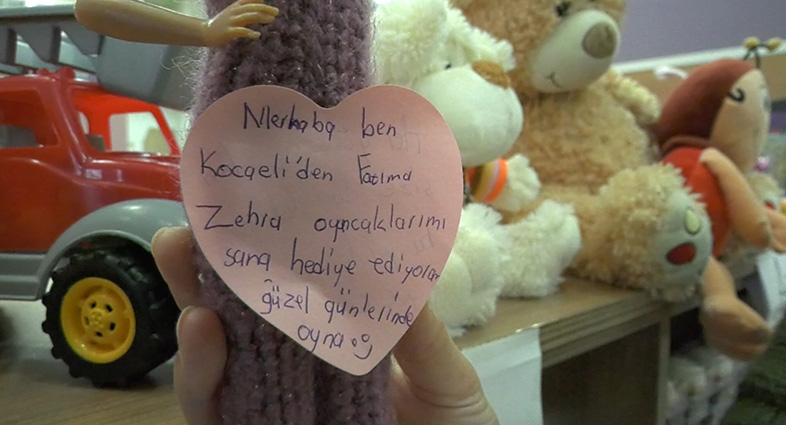 Merhaba ben
Kocaeli'den Fatıma
Zehra oyncaklarımı
sana hediye ediyorum
güzel günlerinde
oyna